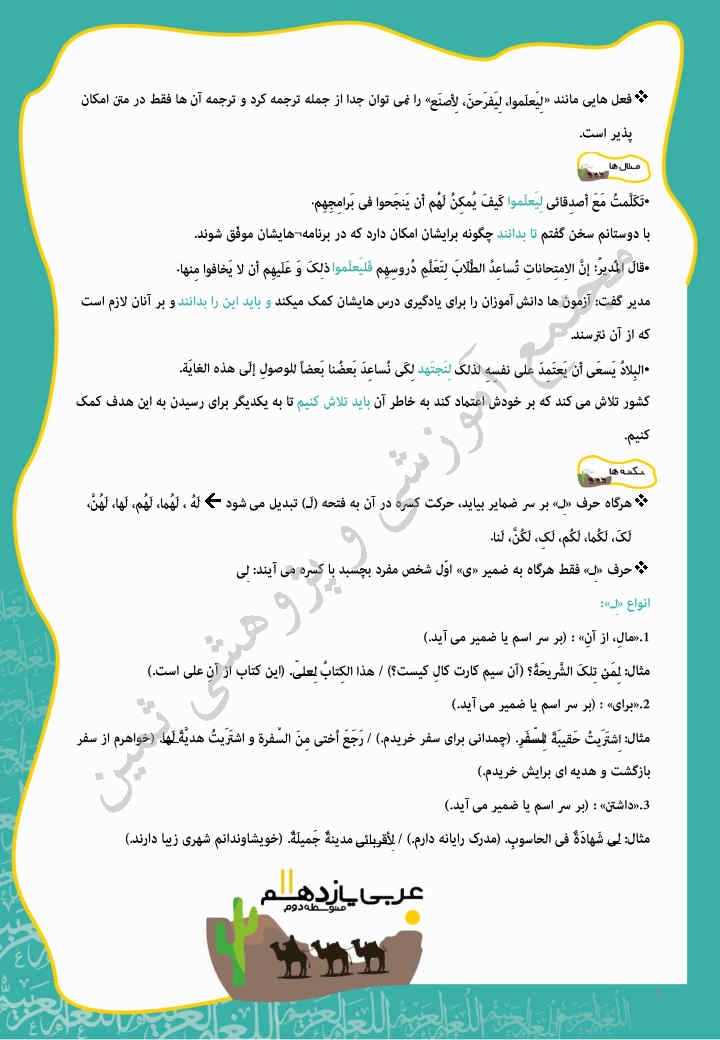 ❖ فعل هایی مانند «لِیَعلَموا، لِیَفرَحنَ، لِأصنَع» را نمی توان جدا از جمله ترجمه کرد و ترجمه آن ها فقط در متن امکان
پذیر است.
مثال ها
•تَکَلَّمتُ مَعَ أصدِقائی لِیَعلَموا کَیفَ یُمکِنُ لَهُم أن یَنجَحوا فی بَرامِجِهِم.
با دوستانم سخن گفتم تا بدانند چگونه برایشان امکان دارد که در برنامه¬هایشان موفّق شوند.
•قال المُدیرُ: إنَّ الاِمتِحاناتِ تُساعِدُ الطُّلّابَ لِتَعَلُّمِ دُروسِهِم فَلیَعلَموا ذلِکَ وَ عَلَیهِم أن لا یَخافوا مِنها.
مدیر گفت: آزمون ها دانش آموزان را برای یادگیری درس هایشان کمک میکند و باید این را بدانند و بر آنان لازم است
که از آن نترسند.
•البِلادُ یَسعَی أن یَعتَمِدَ علی نفسِهِ لذلکَ لِنَجتَهِد لِکَی نُساعِدَ بَعضُنا بَعضاً للوصولِ إلَی هذه الغایَة.
کشور تلاش می کند که بر خودش اعتماد کند به خاطر آن باید تلاش کنیم تا به یکدیگر برای رسیدن به این هدف کمک
کنیم.
نکته ها
❖ هرگاه حرف «لِـ» بر سر ضمایر بیاید، حرکت کسره در آن به فتحه (لَـ) تبدیل می شود ← لَهُ ، لَهُما، لَهُم، لَها، لَهُنَّ،
لَکَ، لَکُما، لَکُم، لَکِ، لَکُنَّ، لَنا.
❖ حرف «لِـ» فقط هرگاه به ضمیر «ی» اوّل شخص مفرد بچسبد با کسره می آیند: لِی
انواع «لِـ»:
1.«مالِ، از آنِ» : (بر سر اسم یا ضمیر می آید.)
مثال: لِمَن تِلکَ الشَّریحَةُ؟ (آن سیم کارت کالِ کیست؟) / هذا الکِتابُ لِعلیّ. (این کتاب از آنِ علی است.)
2.«برای» : (بر سر اسم یا ضمیر می آید.)
مثال: اِشتَرَیتُ حَقیبَةً لِلسَّفَرِ. (چمدانی برای سفر خریدم.) / رَجَعَ أختی مِنَ السّفرة و اشتَرَیتُ هدیَّةً لَها. (خواهرم از سفر
بازگشت و هدیه ای برایش خریدم.)
3.«داشتن» : (بر سر اسم یا ضمیر می آید.)
مثال: لِی شَهادَةٌ فی الحاسوبِ. (مدرک رایانه دارم.) / لِأقرِبائی مدینةٌ جَمیلَةٌ. (خویشاوندانم شهری زیبا دارند.)
مجتمع آموزشی و پژوهشی ثمین
عربی یازدهم
متوسطه دوم